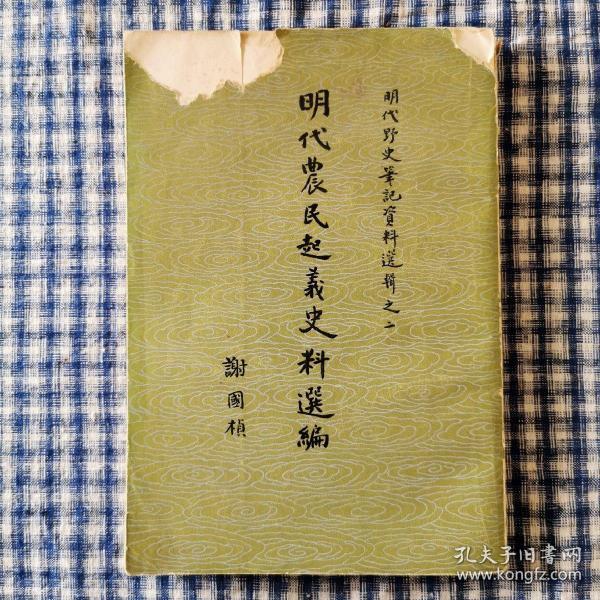 明代野史筆記資料選輯之二
明代農民起義史料選編
謝國楨
孔夫子旧書网
www.kongfz.com